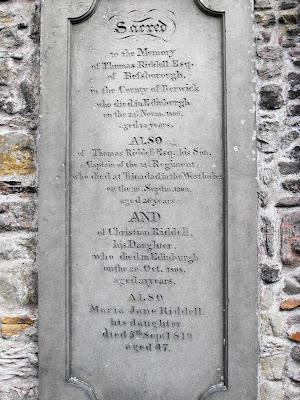 Sacred
to the Memory
of Thomas Riddell Esq.
of Bessbororgh,
in the County of Berwick
who died in Edinburgh
on the 24. Novm. 1806,
aged 72 years.
ALSO
of Thomas Riddell Esq. his Son,
Captain of the 14. Regiment,
who died at Trinadad in the West Indies
on the 16. Septm. 1802,
aged 26 years.
AND
of Christian Riddell,
his Daughter,
who died in Edinburgh
on the 20. Oct. 1808,
aged years.
ALSO
Maria Jane Riddell.
his daughter
died 5th Sept 1819
aged 47.